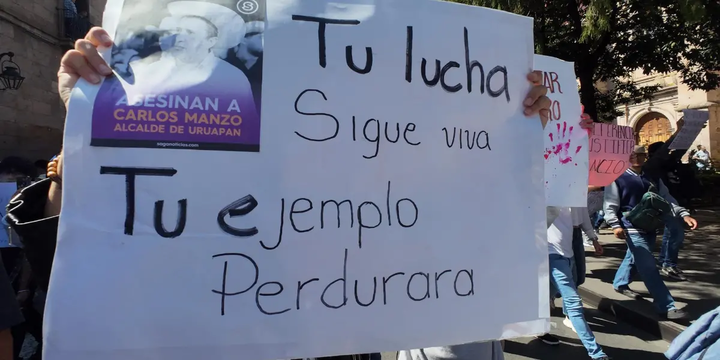 ASESINAN A
CARLOS MANZO
ALCALDE DE URUAPAN
Tu lucha
Sigue viva
Tu ejemplo
Perdurara